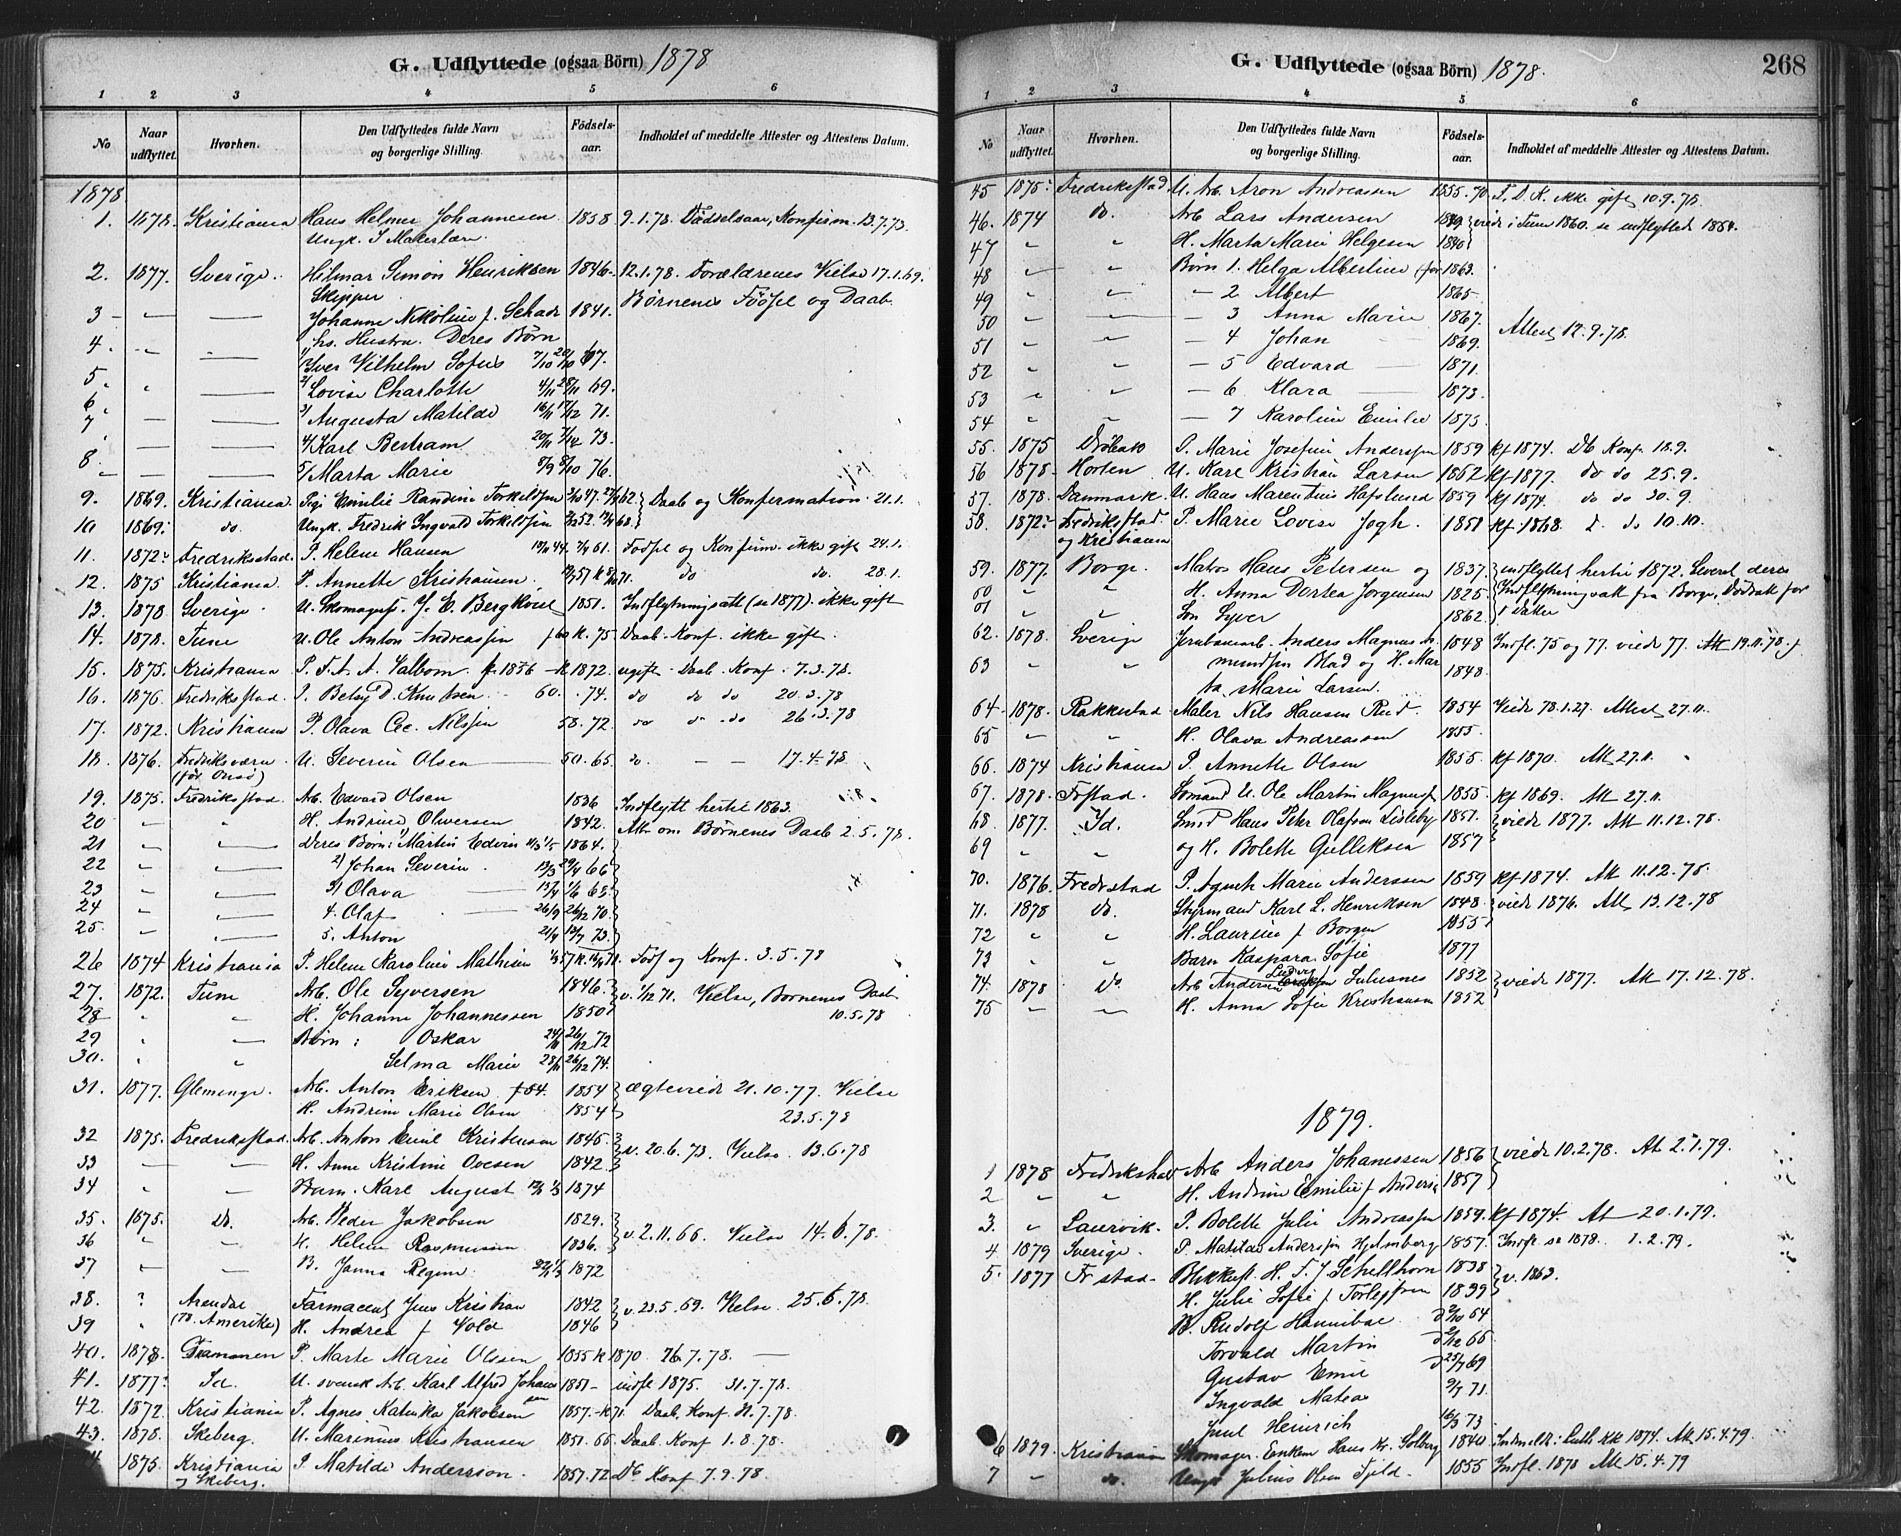 G. Udflyttede (ogsaa Börn) 1878
1 2 3 4 5 6
No Naar udflyttet. Hvorhen. Den Udflyttedes fulde Navn og borgerlige Stilling. Födsels-aar. Indholdet af meddelte Attester og Attestens Datum.
1878
1. 1878. Kristiania Hans Helmer Johannesen 1858 9.1.78. Fødselsaar, Konfirm. 13.7.73.
Ungk. I Malerlære.
2. 1877. Sverige. Hilmar Simon Henriksen 1846. 12.1.78. Forældrenes Vielse 17.1.69.
Skipper Børnenes Fødsel og Daab.
3 Johanne Nikoline f. Schade 1841.
4. hs. Hustru. Deres Börn
1/ Iver Vilhelm Sofus 7/10 20/10 67.
5. 2/ Lovise Charlotte 4/11 28/11 69.
6. 3/ Augusta Matilde 16/11 17/12 71.
7 4/ Karl Bertram 20/11 7/12 73.
8. 5/ Marta Marie 8/9 8/10 76.
9. 1869. Kristiania Pige Emilie Randine Torkildsen Daab og Konfermation. 21.1.
10 1869. do. Ungk. Fredrik Ingvald Torkildsen
11. 1872. Fredriksstad. P. Helene Hansen Fødsel og Konfirm. ikke gift 24.1.
12. 1875 Kristiania. P. Annette Kristiansen. do do. 28.1.
13. 1878 Sverige. U. Skomagersv. J. E. Bergkvist 1851. Indflytningsatt (se 1877). ikke gift
14. 1878. Tune U. Ole Anton Andreassen f. 60 k. 75 Daab. Konf. ikke gift.
15. 1875. Kristiania P. F. A. A. Valbom f. 1856 - k 1872 ugift. Daab. Konf. 7.3.78.
16. 1876. Fredriksstad. P. Betsy D. Knutsen 60. . 74. do do do 20.3.78
17. 1872. Kristiania P. Olava Cec. Nilssen 58. 72. do do do 26.3.78
18. 1876. Fredriksværn U. Severin Olsen 50. 65. do. 17.4.78
19. 1875. Fredriksstad. Arb. Edvard Olsen 1836 Indflytt hertil 1863.
20 H. Andrine Oliversen 1842. Att. om Børnenes Daab 2.5.78.
21 Deres Børn: 1 Martin Edvin 1864.
22 2/ Johan Severin 13/3 29/4 66
23 3/ Olava 13/4 1/6 68
24 4. Olaf 26/9 26/12 70.
25. 5. Anton 21/4 13/7 73.
26 1874 Kristiania P. Helene Karoline Mathisen Fods og Konf. 3.5.78
27. 1872. Tune Arb. Ole Syversen 1846. v. 1/12 71. Vielse, Børnenes Daab
28 H. Johanne Johannessen 1850 10.5.78
29 Børn: Oskar 24/11 26/12 72
30. Selma Marie 28/11 26/12 74.
31. 1877. Glemminge. Arb. Anton Eriksen f 54. 1854 ægteviede 21.10.77. Vielse
H. Andrine Marie Olsen 1854 23.5.78
32 1875. Fredriksstad. Arb. Anton Emil Kristensen 1845. v. 20.6.73. Vielse. 13.6.78
33 H. Anne Kristine Ovesen 1842
34 Barn. Karl August 1874
35. 1875. Do. Arb. Peder Jakobsen 1829. v. 2.11.66. Vielse 14.6.78.
36 H. Helene Rasmussen 1836.
37 B. Janna Regine 1872
38. ? Arendal Farmaceut Jens Kristian 1842 v. 23.5.69. Vielse. 25.6.78.
39 (fr. Amerika) H. Andrea f Vold 1846
40. 1878. Drammen P. Marte Marie Olsen 1855 k 1870 26.7.78.
41. 1877. Id. U. svensk Arb. Karl Alfred Johansson 1851 indfl 1875. 31.7.78.
42. 1872. Kristiania P. Agnes Katinka Jakobsen 1857.-k 71. Daab, Konf. 31.7.78.
43. 1878. Skeberg. U. Marinus Kristiansen 1851. 66. Daab. Konf 1.8.78.
1875. Kristiania P. Matilde Andersson. 1857. 72 Db Konf 7.9.78.
og Skeberg.
G. Udflyttede (ogsaa Börn) 1878. 268
1 2 3 4 5 6
No Naar udflyttet. Hvorhen. Den Udflyttedes fulde Navn og borgerlige Stilling. Födsels-aar. Indholdet af meddelte Attester og Attestens Datum.
45 1875. Fredriksstad U. Arb. Aron Andreassen 1855. 70 F. D. K. ikke gift 10.9.78.
46. 1874 do. Arb Lars Andersen viede i Tune 1860. se indflyttede 1864.
47 H. Marta Marie Helgesen 1840
48 Børn 1. Helga Albertine 1863.
49 2 Albert 1865.
50 3 Anna Marie 1867.
51 4 Johan 1869. Attest 12.9.78.
52 5 Edvard 1871.
53 6 Klara 1873.
54 7 Karoline Emilie 1875.
55. 1875 Drøbak P. Marie Josefine Anderssen 1859 kf 1874. Db Konf. 18.9.
56 1878. Horten U. Karl Kristian Larsen 1862 kf 1877. do do 25.9.
57. 1878. Danmark. U. Hans Marentius Hafslund 1859 kf 1874. do do 30.9.
58. 1872. Fredriksstad P. Marie Lovise Jogh. 1851 kf. 1868. d. do 10.10.
og Kristiania
59. 1877. Borge. Matros Hans Petersen og 1837. indflyttet hertil 1872. Leveret deres
60 H. Anna Dortea Jørgensen 1825 Indflytningsatt fra Borge, Døbsatt for
61 Søn Syver 1862 1 Datter
62. 1878. Sverige Jernbanearb. Anders Magnus A. 1848 Indfl. 75 og 77. viede 77. Att 19.11.78.
63 mundsen Blad og H. Mar 1848
ta Marie Larsen.
64. 1878. Rakkestad Maler Nils Hansen Rud. 1854 Viede 78.1.27. Attest 27.11.
65 H. Olava Andreassen 1855.
66. 1874 Kristiania P. Annette Olsen 1855. kf 1870. Att 27.11.
67. 1878. Frstad. Sømand U. Ole Martin Magnusen 1855 kf 1869. Att 27.11.
68. 1877. Id. Smed Hans Peter Olafson Lisleby 1851. viede 1877. Att 11.12.78.
69 og H. Bolette Gulliksen 1857
70. 1876. Fredrstad P. Agnete Marie Anderssen 1859 kf 1874. Att 11.12.78.
71. 1878 do. Styrmand Karl L. Henriksen 1848. viede 1876. Att 13.12.78
72 H. Laurine f Borgen 1855
73 Barn Kaspara Sofie 1877
74. 1878 Do Arb Anders Ludvig Juliusnes 1852 viede 1877. Att 17.12.78.
75 H. Anna Sofie Kristiansen 1852
1879.
1 1878 Fredrikshald Arb Anders Johanessen 1856 viede 10.2.78. At 2.1.79.
2 H. Andrine Emilie f Anders 1857
3. Laurvik. P. Bolette Julie Andreassen 1859. kf 1874. At 20.1.79.
4 1879 Sverige. P. Matilde Anderssen Hjelmberg 1857. Indfl se 1878. 1.2.79.
5. 1877 Frstad. Blikksl. H. F. J Schellhorn 1838 v. 1863.
H. Julie Sofie f Torlefsen 1839
B. Rudolf Hannibal 2/10 64
Torvald Martin 2/12 66
Gustav Emil 25/7 69
Ingvald Mateus 9/7 71.
Juul Heinrich 16/3 73.
6 1879. Kristiania Skomager. Enkem Hans Kr. Solberg 1840 Indmeldt i Luth Kk 1874. Att. 15.4.79.
7 do. Ungk Julius Olsen Fjeld. 1855 Indfl. 1878 Att 15.4.79